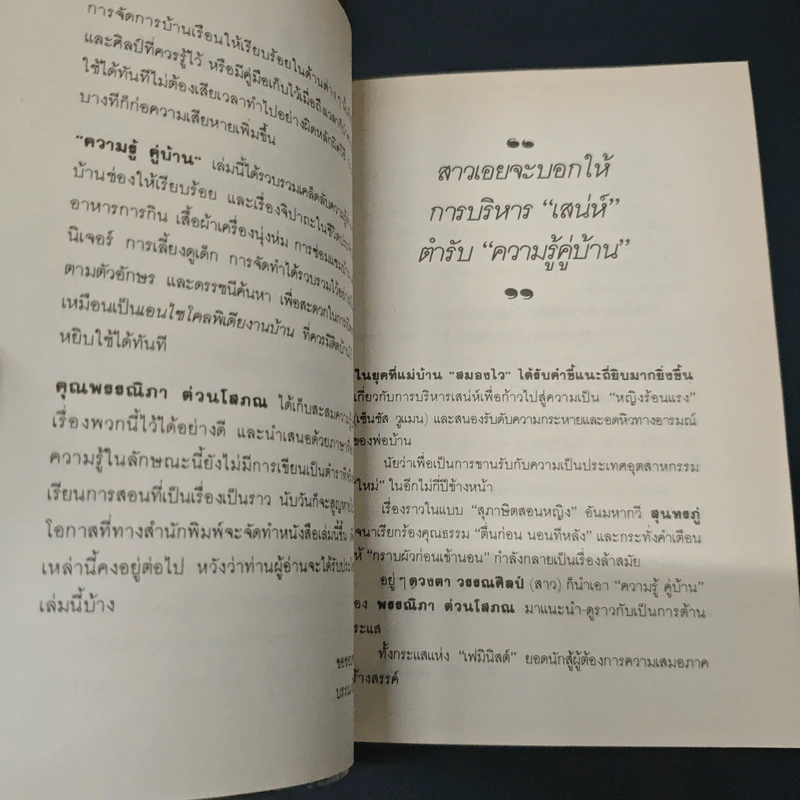 การจัดการบ้านเรือนให้เรียบร้อยในด้านต่างๆ
และศิลป์ที่ควรรู้ไว้ หรือมีคู่มือเก็บไว้เมื่อถึงเวลา
ใช้ได้ทันทีไม่ต้องเสียเวลาทำไปอย่างผิดหลัก
บางทีก็ก่อความเสียหายเพิ่มขึ้น
"ความรู้ คู่บ้าน" เล่มนี้ได้รวบรวมเคล็ดลับความรู้
บ้านช่องให้เรียบร้อย และเรื่องจิปาถะในชีวิต
อาหารการกิน เสื้อผ้าเครื่องนุ่งห่ม การซ่อมแซมบ้าน
นิเจอร์ การเลี้ยงดูเด็ก การจัดทำได้รวบรวมไว้
ตามตัวอักษร และดรรชนีค้นหา เพื่อสะดวกในการ
เหมือนเป็นเอนไซโคลพิเดียงานบ้าน ที่ควรมีติดบ้าน
หยิบใช้ได้ทันที
คุณพรรณิภา ต่วนโสภณ ได้เก็บสะสมความรู้
เรื่องพวกนี้ไว้ได้อย่างดี และนำเสนอด้วยภาษา
ความรู้ในลักษณะนี้ยังไม่มีการเขียนเป็นตำรา
เรียนการสอนที่เป็นเรื่องเป็นราว นับวันก็จะสูญหาย
โอกาสที่ทางสำนักพิมพ์จะจัดทำหนังสือเล่มนี้ขึ้น
เหล่านี้คงอยู่ต่อไป หวังว่าท่านผู้อ่านจะได้รับ
เล่มนี้บ้าง
❝
สาวเอยจะบอกให้
การบริหาร "เสน่ห์"
ตำรับ "ความรู้คู่บ้าน"
❞
ในยุคที่แม่บ้าน "สมองไว" ได้รับคำชี้แนะถี่ยิบมากยิ่งขึ้น
เกี่ยวกับการบริหารเสน่ห์เพื่อก้าวไปสู่ความเป็น "หญิงร้อนแรง"
(เซ็นชัส วูแมน) และสนองรับดับความกระหายและอดหิวทางอารมณ์
ของพ่อบ้าน
นัยว่าเพื่อเป็นการขานรับกับความเป็นประเทศอุตสาหกรรม
"ใหม่" ในอีกไม่กี่ปีข้างหน้า
เรื่องราวในแบบ "สุภาษิตสอนหญิง" อันมหากวี สุนทรภู่
จนาเรียกร้องคุณธรรม "ตื่นก่อน นอนทีหลัง" และกระทั่งคำเตือน
ห้ "กราบผัวก่อนเข้านอน" กำลังกลายเป็นเรื่องล้าสมัย
อยู่ๆ ดวงตา วรรณศิลป์ (สาว) ก็นำเอา "ความรู้ คู่บ้าน"
อง พรรณิภา ต่วนโสภณ มาแนะนำ-ดูราวกับเป็นการต้าน
ระแส
ทั้งกระแสแห่ง "เฟมินิสต์" ยอดนักสู้ผู้ต้องการความเสมอภาค
ร้างสรรค์